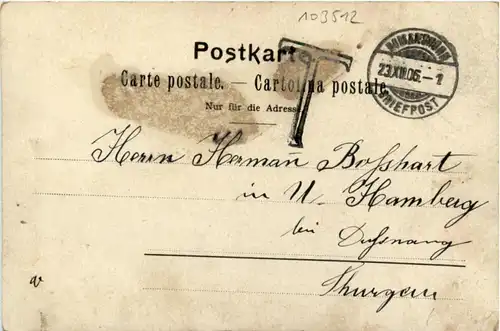 103512
Postkarte
Carte postale. — Cartolina postale.
Nur für die Adresse
T
23.XII.06.-1
BRIEFPOST
Herrn Herman Bosshart
in U. Hamberg
bei Dussnang
Thurgau